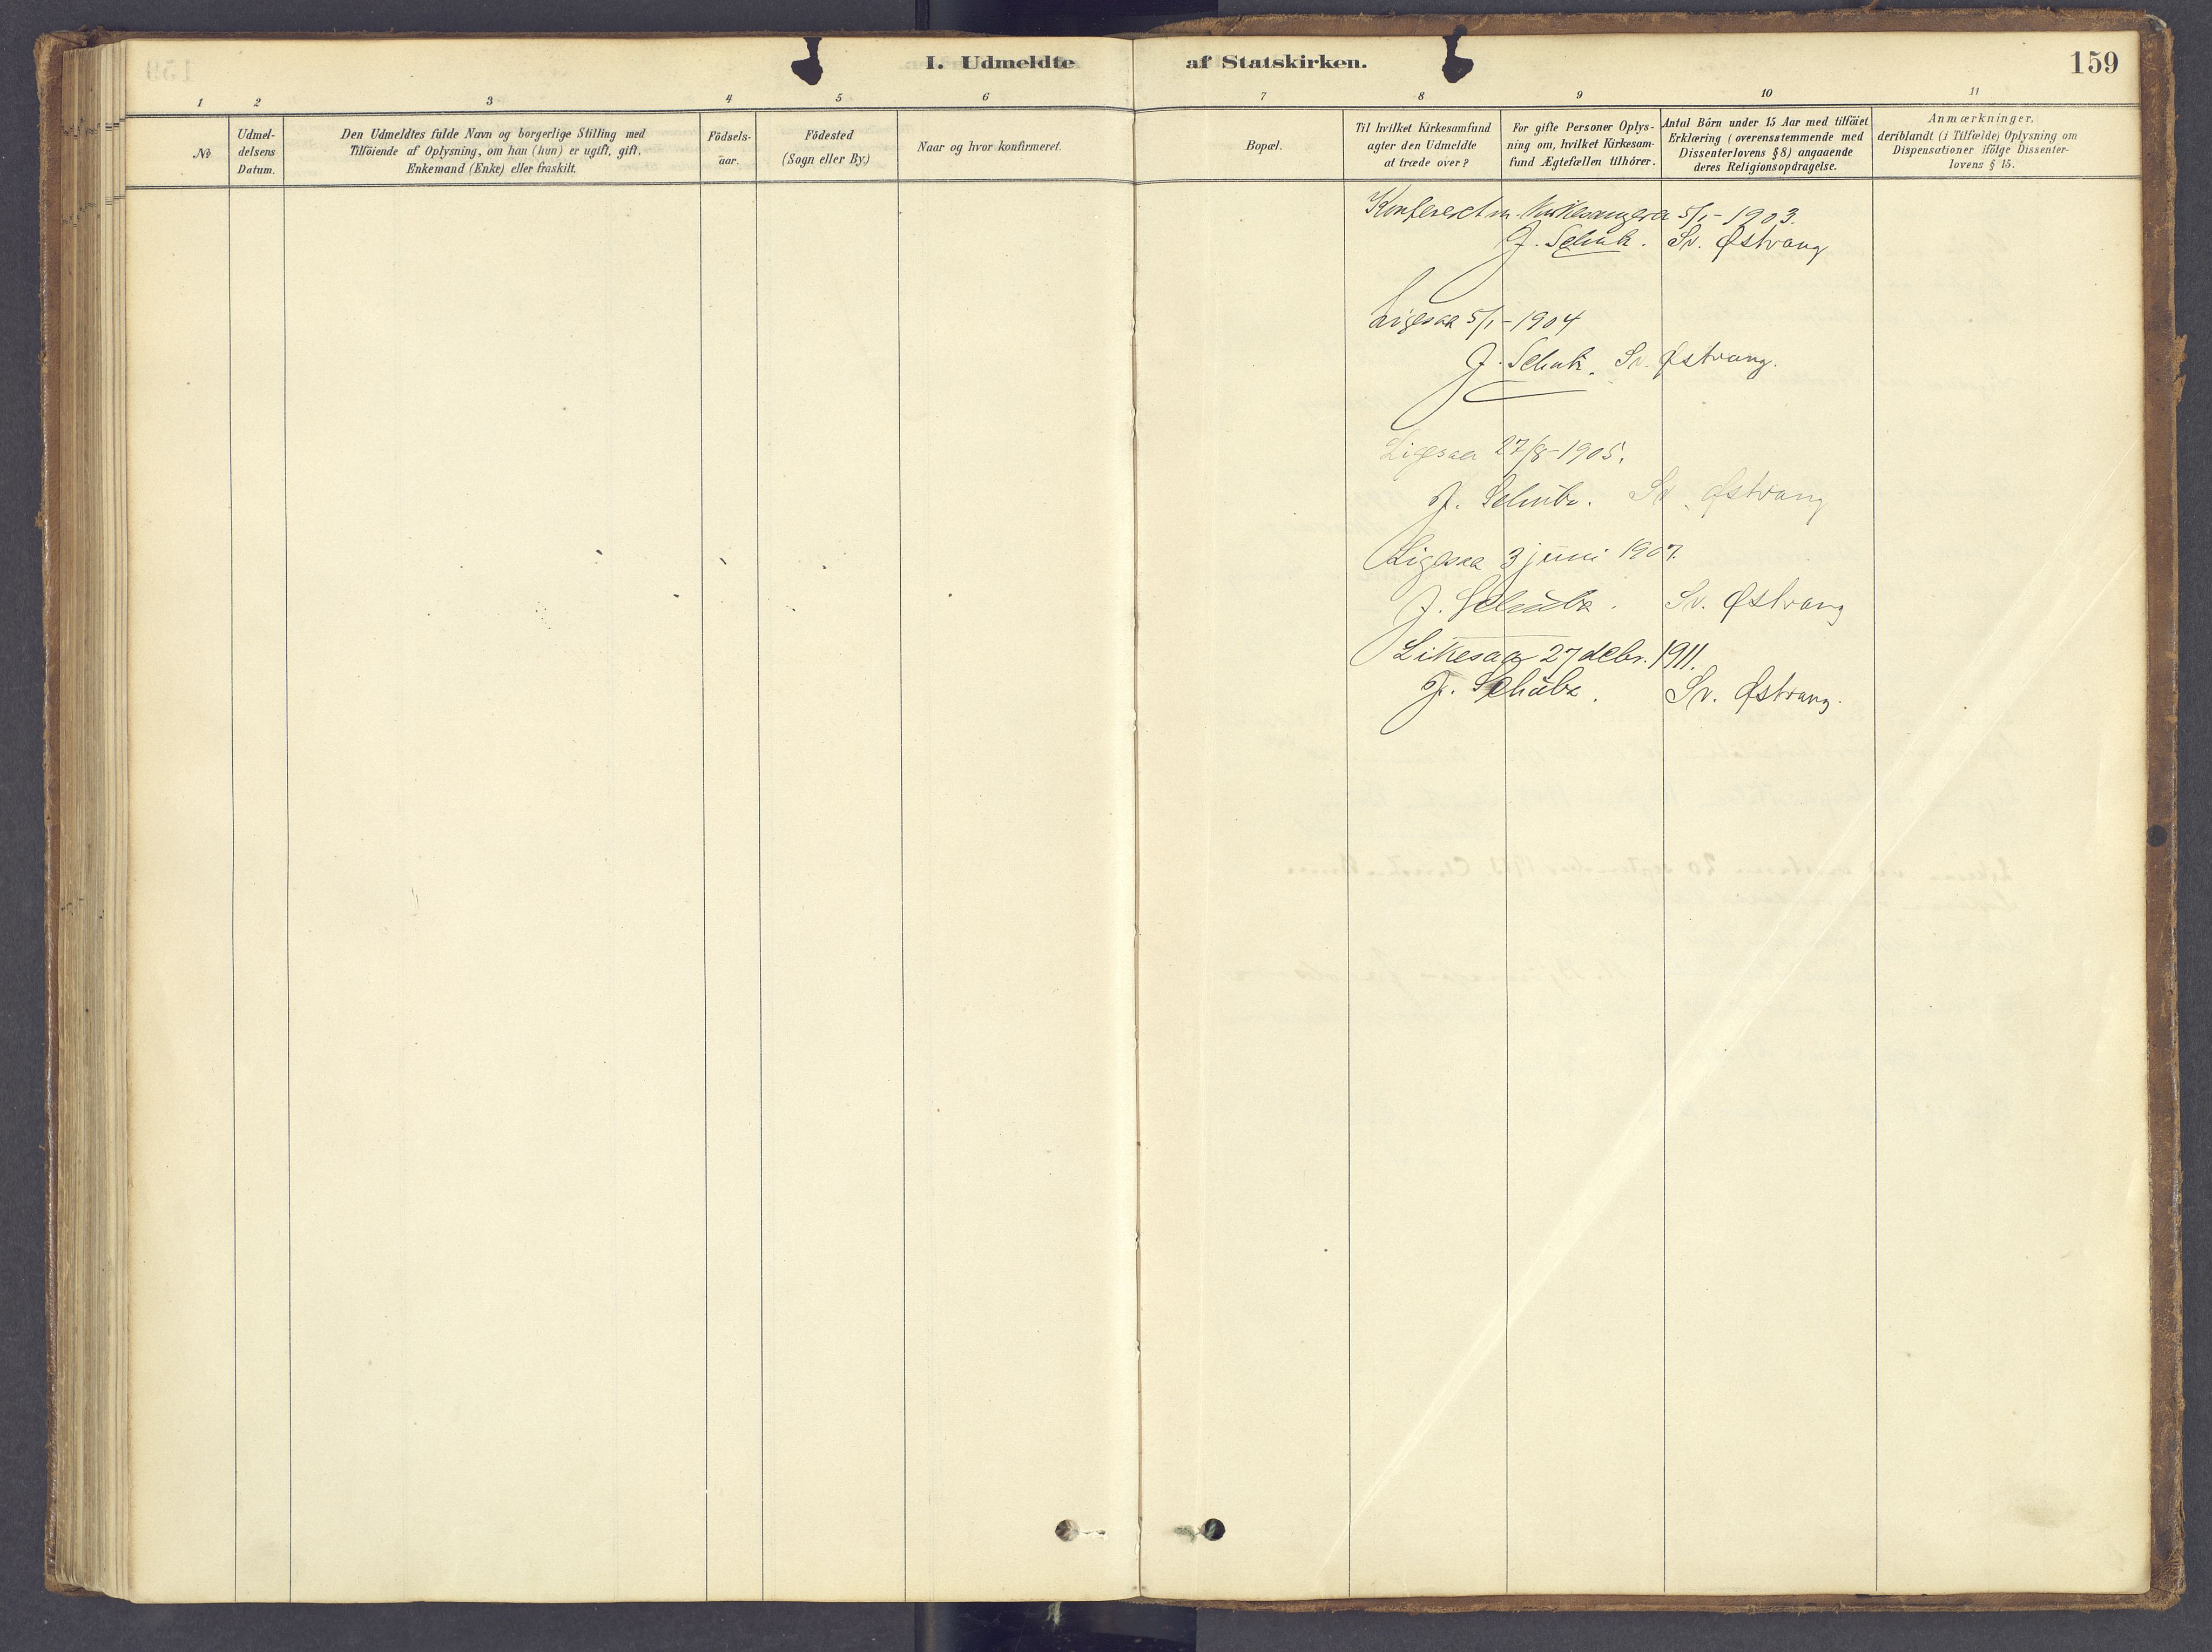 I. Udmeldte af Statskirken.
159
1 2 3 4 5 6 7 8 9 10 11
No
Udmel-
delsens
Datum.
Den Udmeldtes fulde Navn og borgerlige Stilling med
Tilföiende af Oplysning, om han (hun) er ugift, gift,
Enkemand (Enke) eller fraskilt.
Födsels-
aar.
Födested
(Sogn eller By.)
Naar og hvor konfirmeret.
Bopæl.
Til hvilket Kirkesamfund
agter den Udmeldte
at træde over?
For gifte Personer Oplys-
ning om, hvilket Kirkesam-
fund Ægtefællen tilhörer.
Antal Börn under 15 Aar med tilföiet
Erklæring (overensstemmende med
Dissenterlovens § 8) angaaende
deres Religionsopdragelse.
Anmærkninger,
deriblandt (i Tilfælde) Oplysning om
Dispensationer ifölge Dissenter-
lovens § 15.
Konfereret m. Kirkesangeren 5/1-1903.
J. Schübe. Sv. Østvang
Ligesaa 5/1-1904
J. Schübe. Sv. Østvang.
Ligesaa 27/8-1905.
J. Schübe. Sv. Østvang
Ligesaa 3 juni 1907.
J. Schübe. Sv. Østvang
Likesaa 27 debr. 1911.
J. Schübe. Sv. Østvang.